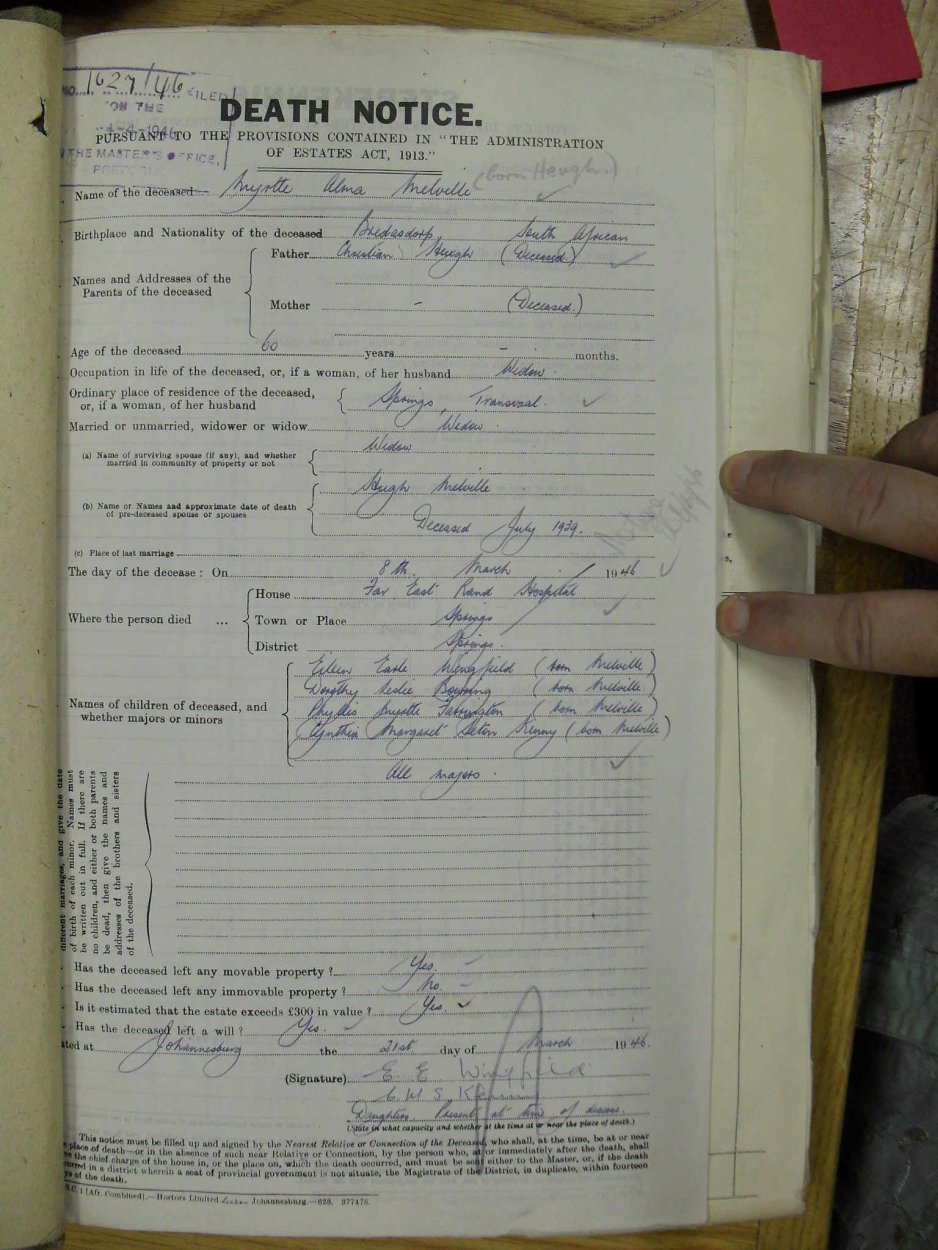 NO. 1627/46 FILED
ON THE
-4-1946
THE MASTER'S OFFICE,
PRETORIA
DEATH NOTICE.
PURSUANT TO THE PROVISIONS CONTAINED IN "THE ADMINISTRATION
OF ESTATES ACT, 1913."
Name of the deceased Myrtle Alma Melville (born Heugh)
Birthplace and Nationality of the deceased Bredasdorp, South African
Names and Addresses of the Parents of the deceased
Father Christian Heugh (Deceased)
Mother - (Deceased.)
Age of the deceased 60 years - months.
Occupation in life of the deceased, or, if a woman, of her husband Widow.
Ordinary place of residence of the deceased,
or, if a woman, of her husband Springs, Transvaal.
Married or unmarried, widower or widow Widow.
(a) Name of surviving spouse (if any), and whether
married in community of property or not Widow
(b) Name or Names and approximate date of death
of pre-deceased spouse or spouses Hugh Melville
Deceased July 1939.
(c) Place of last marriage
The day of the decease: On 8th March 1946
Where the person died ...
House Far East Rand Hospital
Town or Place Springs
District Springs.
Names of children of deceased, and
whether majors or minors
Eileen Earle Wingfield (born Melville)
Dorothy Leslie Bowring (born Melville)
Phyllis Myrtle (born Melville)
Cynthia Margaret Seton Kenny (born Melville)
All majors.
different marriages, and give the date
of birth of each minor. Names must
be written out in full. If there are
no children, and either or both parents
be dead, then give the names and
addresses of the brothers and sisters
of the deceased.
Has the deceased left any movable property? Yes.
Has the deceased left any immovable property? No.
Is it estimated that the estate exceeds £300 in value? Yes.
Has the deceased left a will? Yes.
ated at Johannesburg the 21st day of March 1946.
(Signature) E. E Wingfield
C. M. S. Kenny
Daughters. Present at time of decease.
(State in what capacity and whether at the time at or near the place of death.)
This notice must be filled up and signed by the Nearest Relative or Connection of the Deceased, who shall, at the time, be at or near
place of death—or in the absence of such near Relative or Connection, by the person who, at or immediately after the death, shall
the chief charge of the house in, or the place on, which the death occurred, and must be sent either to the Master, or, if the death
urred in a district wherein a seat of provincial government is not situate, the Magistrate of the District, in duplicate, within fourteen
s of the death.
1 [Afr. Combined].—Hortors Limited Johannesburg.—628. 377476.